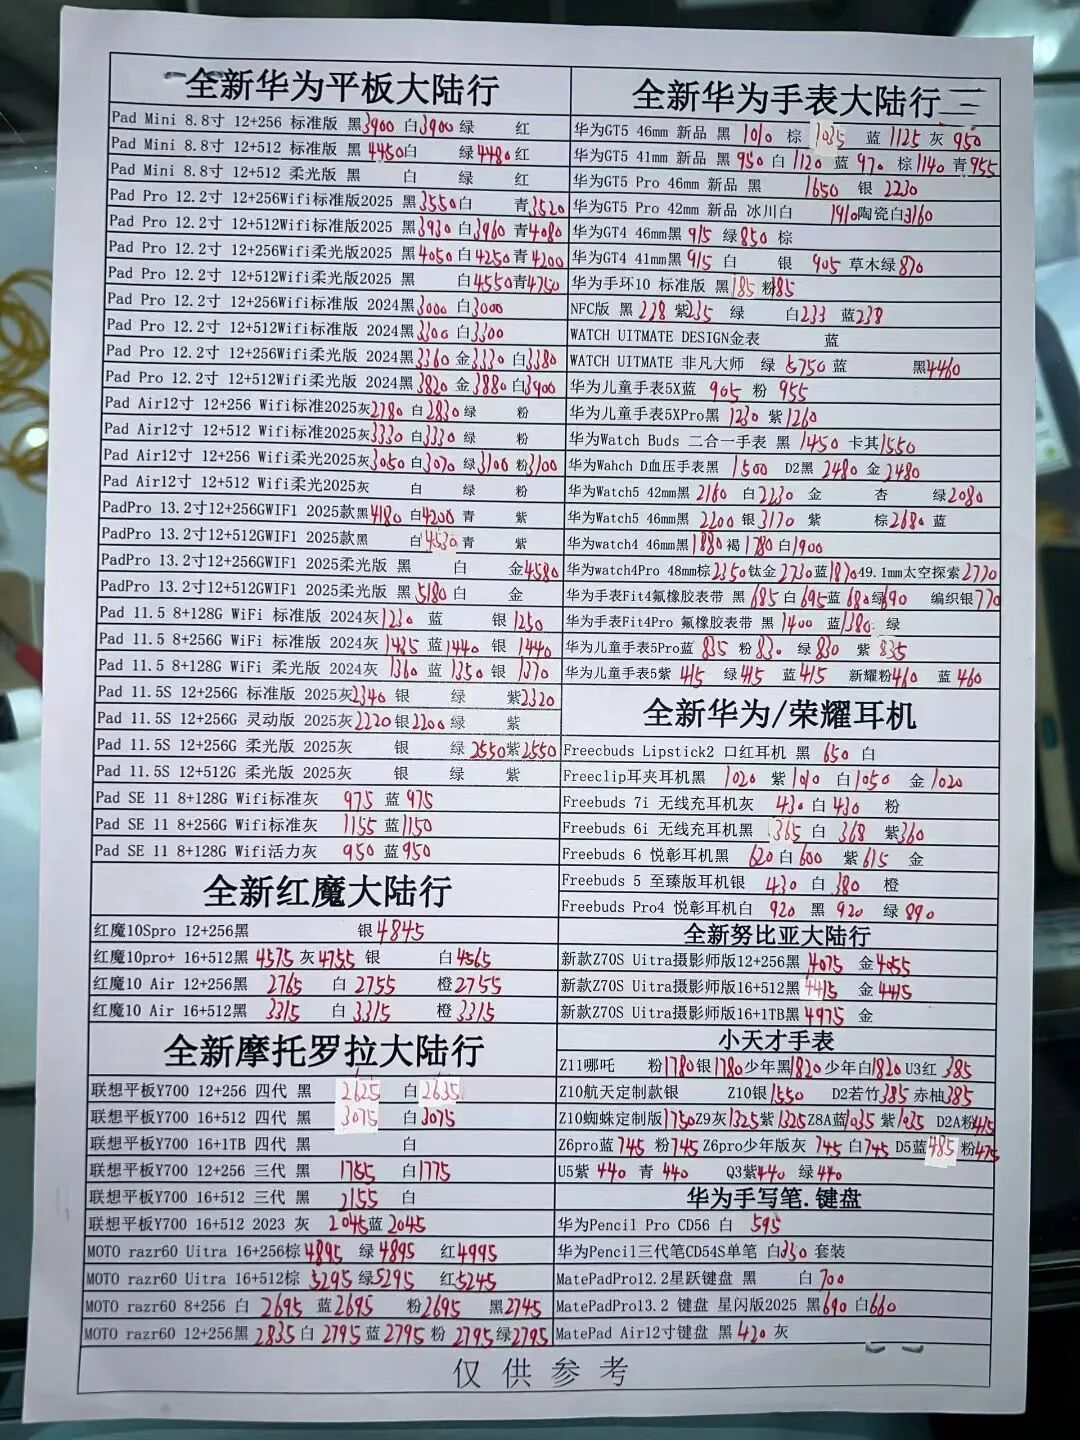 全新华为平板大陆行
Pad Mini 8.8寸 12+256 标准版 黑3900 白3900 绿 红
Pad Mini 8.8寸 12+512 标准版 黑4450白 绿4480红
Pad Mini 8.8寸 12+512 柔光版 黑 白 绿 红
Pad Pro 12.2寸 12+256Wifi标准版2025 黑3550白 青3520
Pad Pro 12.2寸 12+512Wifi标准版2025 黑3930 白3960 青4080
Pad Pro 12.2寸 12+256Wifi柔光版2025 黑4050白4250青4200
Pad Pro 12.2寸 12+512Wifi柔光版2025 黑 白4550青4750
Pad Pro 12.2寸 12+256Wifi标准版 2024黑3000 白3000
Pad Pro 12.2寸 12+512Wifi标准版 2024黑3300 白3300
Pad Pro 12.2寸 12+256Wifi柔光版 2024黑3360 金3330 白3380
Pad Pro 12.2寸 12+512Wifi柔光版 2024黑3820 金3880白3900
Pad Air12寸 12+256 Wifi标准2025灰2780 白2830绿 粉
Pad Air12寸 12+512 Wifi标准2025灰3330白3330绿 粉
Pad Air12寸 12+256 Wifi柔光2025灰3050白3070 绿3100粉3100
Pad Air12寸 12+512 Wifi柔光2025灰 白 绿 粉
PadPro 13.2寸12+256GWIF1 2025款黑4180 白4200 青 紫
PadPro 13.2寸12+512GWIF1 2025款黑 白4530青 紫
PadPro 13.2寸12+256GWIF1 2025柔光版 黑 白 金4580
PadPro 13.2寸12+512GWIF1 2025柔光版 黑5180白 金
Pad 11.5 8+128G WiFi 标准版 2024灰1230 蓝 银1250
Pad 11.5 8+256G WiFi 标准版 2024灰1435 蓝1440 银 1440
Pad 11.5 8+128G WiFi 柔光版 2024灰1360 蓝1350银 1370
Pad 11.5S 12+256G 标准版 2025灰2340 银 绿 紫2320
Pad 11.5S 12+256G 灵动版 2025灰2220银2200绿 紫
Pad 11.5S 12+256G 柔光版 2025灰 银 绿 2550紫2550
Pad 11.5S 12+512G 柔光版 2025灰 银 绿 紫
Pad SE 11 8+128G Wifi标准灰 975 蓝975
Pad SE 11 8+256G Wifi标准灰 1155 蓝1150
Pad SE 11 8+128G Wifi活力灰 950 蓝950
全新红魔大陆行
红魔10Spro 12+256黑 银4845
红魔10pro+ 16+512黑4575 灰4755 银 白4565
红魔10 Air 12+256黑 2765 白 2755 橙2755
红魔10 Air 16+512黑 3315 白 3315 橙3315
全新摩托罗拉大陆行
联想平板Y700 12+256 四代 黑 2625 白2635
联想平板Y700 16+512 四代 黑 3075 白3075
联想平板Y700 16+1TB 四代 黑 白
联想平板Y700 12+256 三代 黑 1755 白1775
联想平板Y700 16+512 三代 黑 2155 白
联想平板Y700 16+512 2023 灰 2045蓝2045
MOTO razr60 Uitra 16+256棕4895 绿4895 红4995
MOTO razr60 Uitra 16+512棕 5295绿5295 红5245
MOTO razr60 8+256 白 2695 蓝2695 粉2695 黑2745
MOTO razr60 12+256黑2835白 2795蓝2795粉 2795绿2795
全新华为手表大陆行
华为GT5 46mm 新品 黑 1010 棕 1035 蓝1125灰950
华为GT5 41mm 新品 黑950白1120 蓝 970 棕1140青955
华为GT5 Pro 46mm 新品 黑 1650 银 2230
华为GT5 Pro 42mm 新品 冰川白 1910陶瓷白3160
华为GT4 46mm黑 915 绿850棕
华为GT4 41mm黑915 白 银 905 草木绿870
华为手环10 标准版 黑185粉185
NFC版 黑 228 紫235 绿 白233 蓝238
WATCH UITMATE DESIGN金表 蓝
WATCH UITMATE 非凡大师 绿 5750蓝 黑4460
华为儿童手表5X蓝 905 粉 955
华为儿童手表5XPro黑 1230 紫1260
华为Watch Buds 二合一手表 黑 1450 卡其1550
华为Wahch D血压手表黑 1500 D2黑 2480 金2480
华为Watch5 42mm黑 2160 白2230 金 杏 绿2080
华为Watch5 46mm黑 2200银3170 紫 棕2680蓝
华为watch4 46mm黑1880褐1780白1900
华为watch4Pro 48mm棕2350钛金2730蓝1870 49.1mm太空探索2770
华为手表Fit4氟橡胶表带 黑 685白695蓝680绿690 编织银770
华为手表Fit4Pro 氟橡胶表带 黑 1400 蓝1380 绿
华为儿童手表5Pro蓝 835 粉830 绿830 紫835
华为儿童手表5紫415 绿415 蓝415 新耀粉460 蓝460
全新华为/荣耀耳机
Freecbuds Lipstick2 口红耳机 黑 650 白
Freeclip耳夹耳机黑 1020 紫1010 白1050 金1020
Freebuds 7i 无线充耳机灰 430白430 粉
Freebuds 6i 无线充耳机黑 365白 368 紫360
Freebuds 6 悦彰耳机黑 620白600 紫615 金
Freebuds 5 至臻版耳机银 430 白380 橙
Freebuds Pro4 悦彰耳机白 920 黑 920 绿890
全新努比亚大陆行
新款Z70S Uitra摄影师版12+256黑 4075 金4055
新款Z70S Uitra摄影师版16+512黑4415 金4415
新款Z70S Uitra摄影师版16+1TB黑4975 金
小天才手表
Z11哪吒 粉1780银1780少年黑1820少年白1820 U3红 385
Z10航天定制款银 Z10银1550 D2若竹385赤柚385
Z10蜘蛛定制版1750Z9灰1325紫1325Z8A蓝1035 紫1035 D2A粉415
Z6pro蓝 745 粉745 Z6pro少年版灰 745 白745 D5蓝485粉475
U5紫 440 青 440 Q3紫440 绿440
华为手写笔.键盘
华为Pencil Pro CD56 白 595
华为Pencil三代笔CD54S单笔 白350套装
MatePadPro12.2星跃键盘 黑 白700
MatePadPro13.2 键盘 星闪版2025 黑690白660
MatePad Air12寸键盘 黑420灰
仅供参考